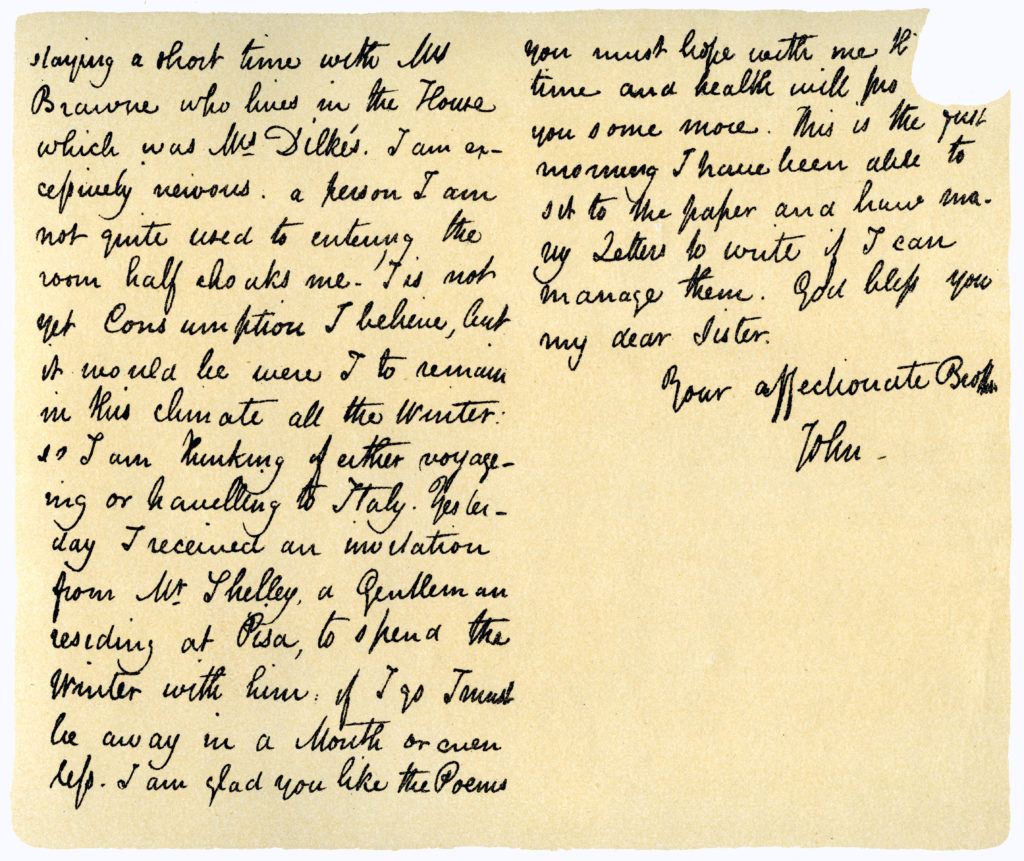 staying a short time with Mrs
Brawne who lives in the House
which was Mrs Dilke's. I am ex-
cessively nervous. a person I am
not quite used to entering the
room half choaks me - 'T is not
yet Consumption I believe, but
it would be were I to remain
in this climate all the Winter:
so I am thinking of either voyage-
ing or travelling to Italy. Yester-
day I received an invitation
from Mr Shelley, a Gentleman
residing at Pisa, to spend the
Winter with him: if I go I must
be away in a Month or even
less. I am glad you like the Poems
you must hope with me
time and health will pro
you some more. This is the first
morning I have been able to
sit to the paper and have ma-
ny Letters to write if I can
manage them. God bless you
my dear Sister.
Your affectionate Brother
John -